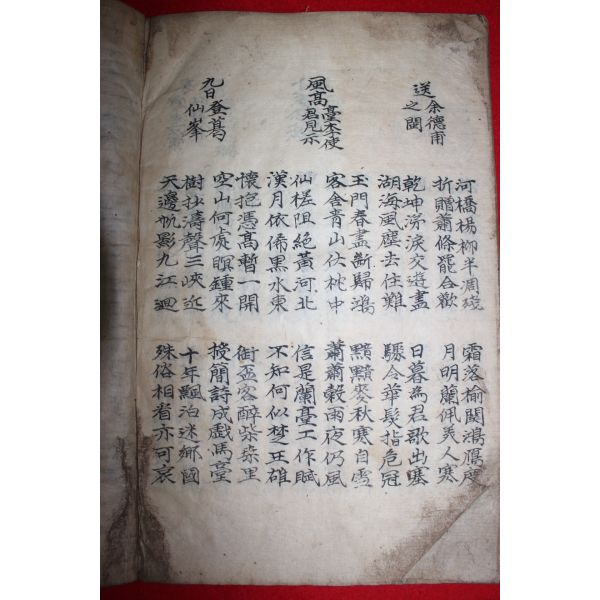 送余德甫
之閩
河橋楊柳半凋殘
折贈蕭條罷合歡
霜落榆関鴻鴈度
月明蘭佩美人寒
乾坤涕淚交遊盡
湖海風塵去住難
日暮為君歌出塞
驟令華髮指危冠
風高臺李使
君見示
玉門春盡斷歸鴻
客舍青山伏枕中
黯黯麥秋寒自雪
蕭蕭穀雨夜仍風
仙槎阻絕黃河北
漢月依俙黑水東
信是蘭臺工作賦
不知何似楚王雄
九日登葛
仙峯
懷抱憑高暫一開
空山何處暝鍾來
銜盃客醉柴桑里
授簡詩成戲馬臺
樹杪濤聲三峽近
天邊帆影九江迴
十年飄泊迷鄉國
殊俗相看亦可哀